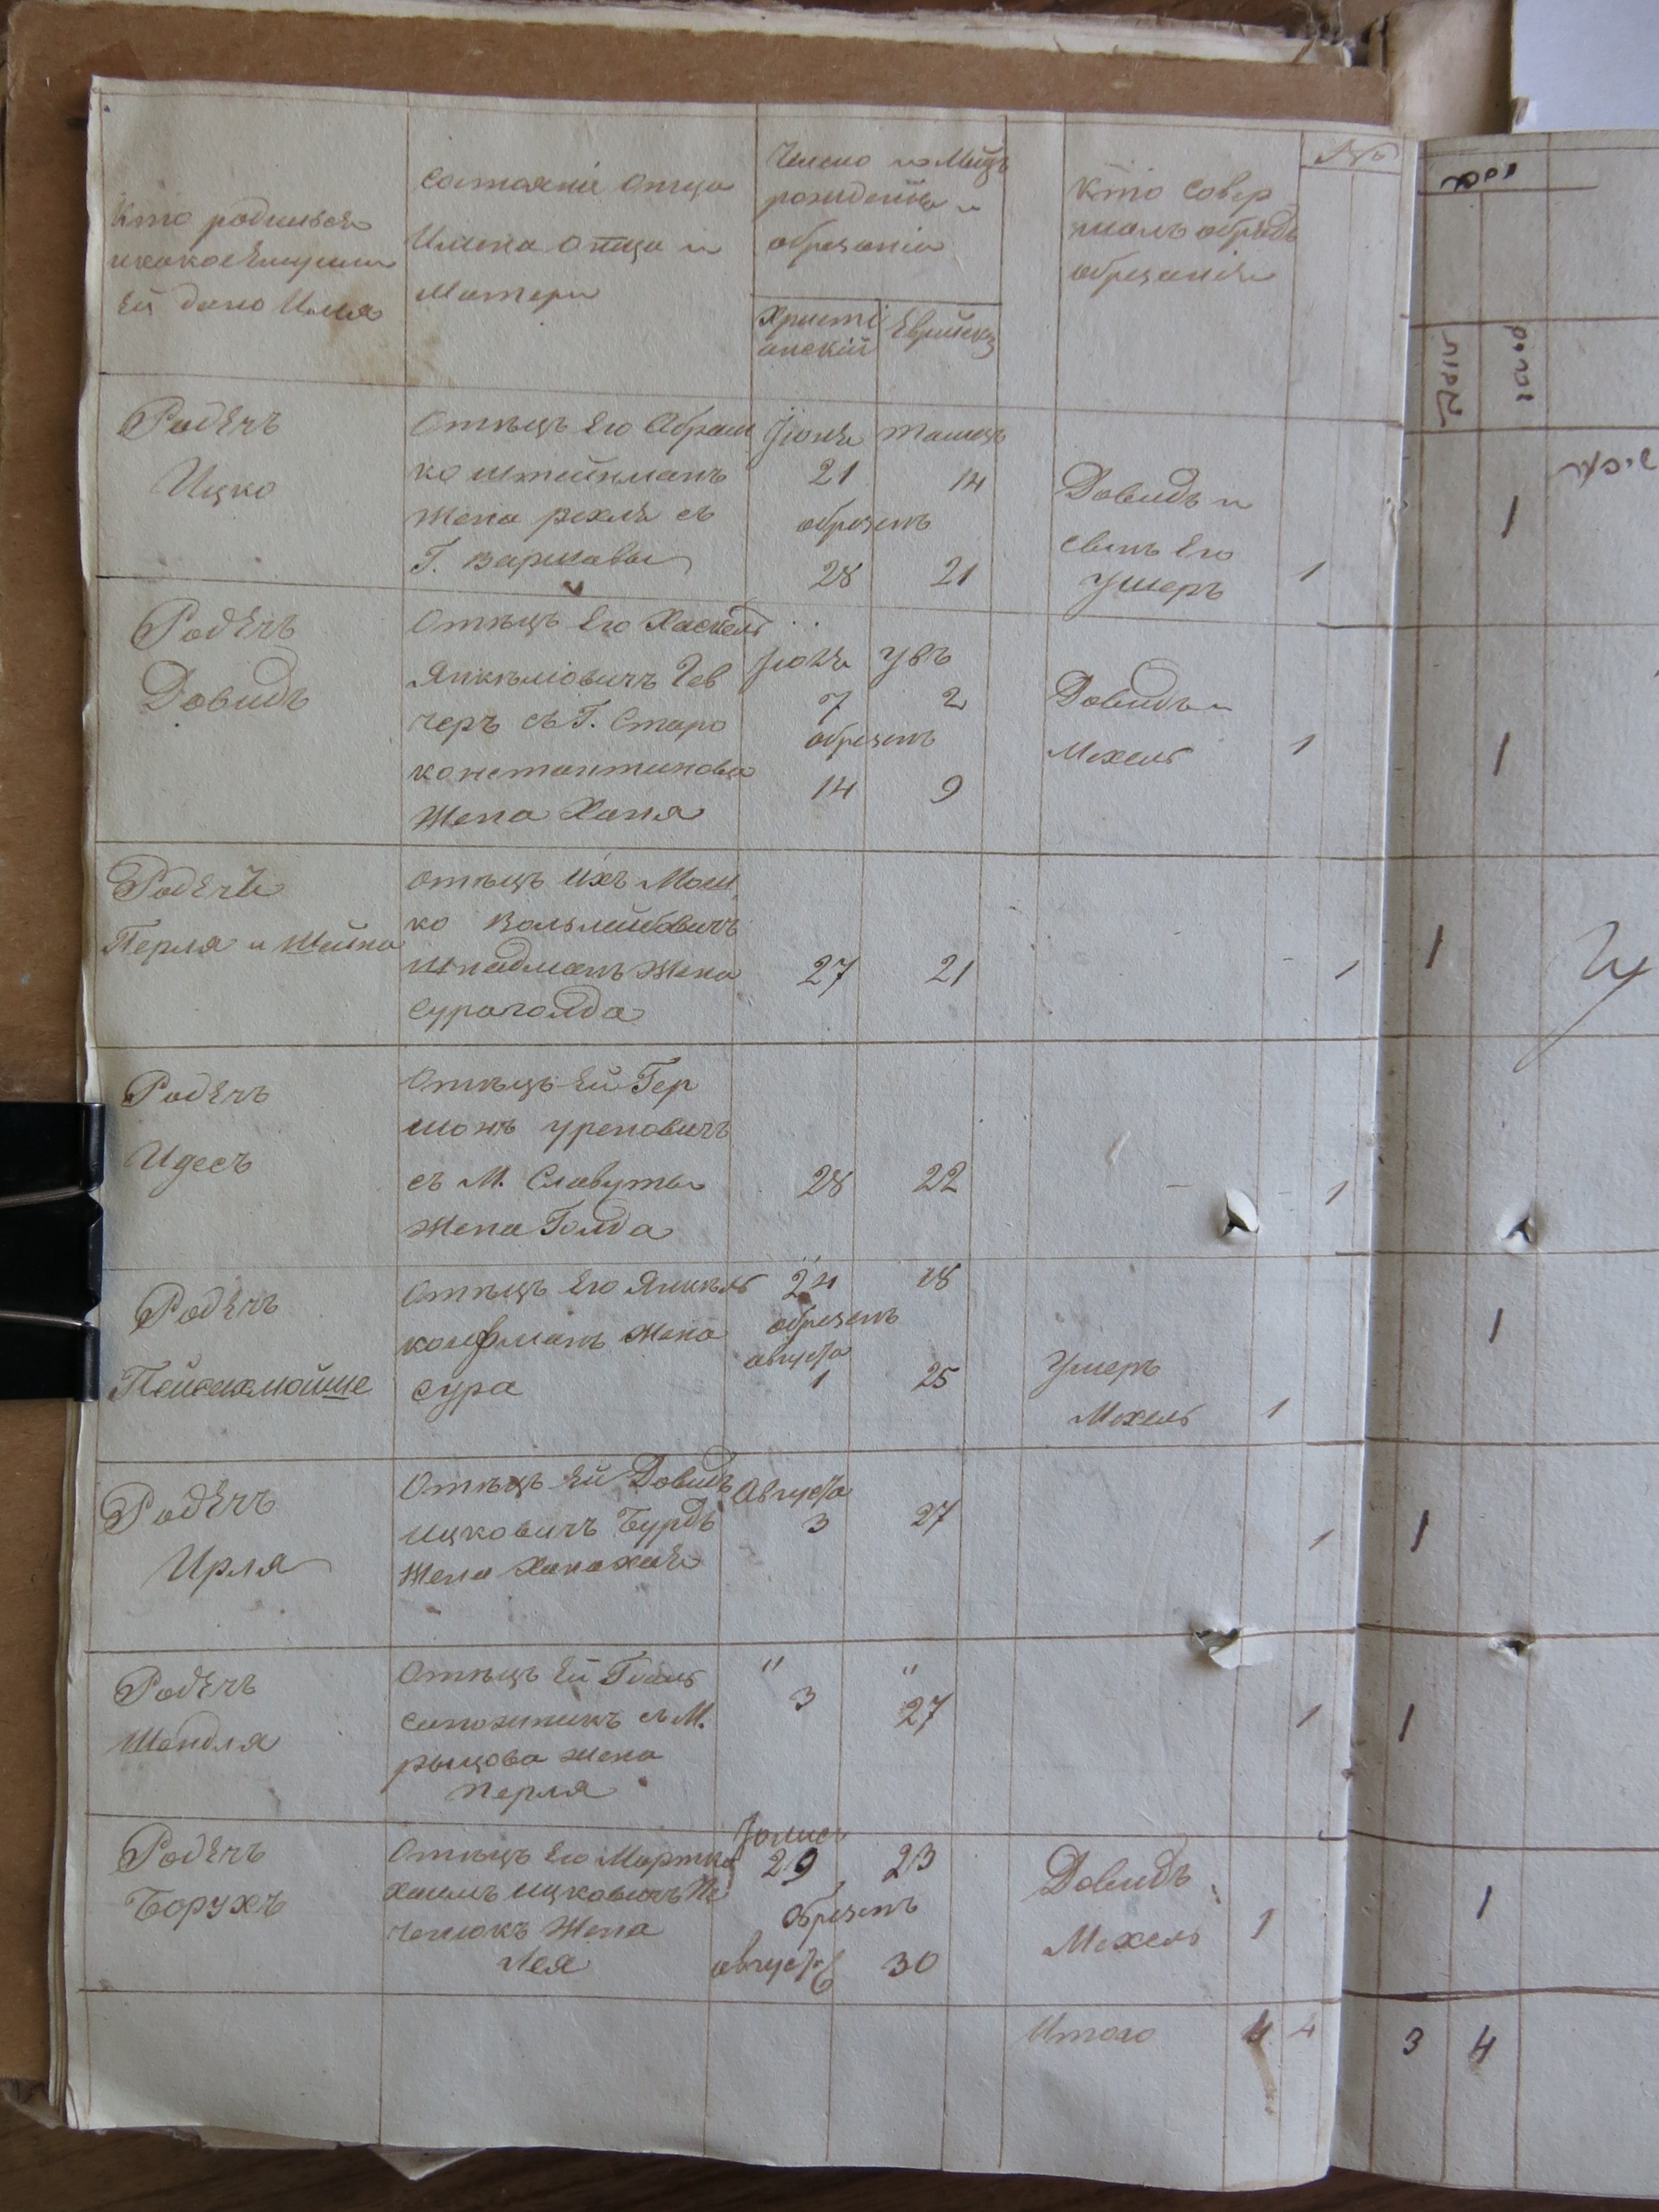 Кто родился
и какое Ему или
Ей дано Имя
Состояніе Отца
Имена отца и
Матери
Число и Мѣцъ
рожденія и
обрезанія
Христі
анскій
Еврейскій
Кто Совер
шалъ обрядъ
обрезанія
№
РодЕнъ
Ицко
Отецъ Его Абрам
ко штейнманъ
Жена рехля съ
Г. Варшавы
Іюня
21
обрезенъ
28
Тамузъ
14
21
Довидъ и
сынъ Его
Ушеръ
1
1
РодЕнъ
Довидъ
Отецъ Его Хаскель
Янкѣлювичъ
черъ съ Г. Старо
константинова
Жена Ханя
Іюня
7
обрезенъ
14
2
9
Довидъ и
Мехель
1
1
РодЕны
Перля и Шейна
Отецъ Ихъ Мош
ко Вольлейбовичъ
шпадманъ Жена
Сураголда
27
21
1
1
РодЕнъ
Идесъ
Отецъ Ей Гер
шонъ
съ М. Славуты
Жена Голда
28
22
1
РодЕнъ
Пейсахмойше
Отецъ Его Янкель
кофманъ Жена
Сура
24
обрезенъ
августа
1
18
25
Ушеръ
Мехель
1
1
РодЕнъ
Ирля
Отецъ Ей Довидъ
Ицковичъ Бурдъ
Жена Ханахая
Августа
3
27
1
1
РодЕнъ
Шендля
Отецъ Ей
сапожникъ съ М.
рыцова жена
Перля
"
3
"
27
1
1
РодЕнъ
Борухъ
Отецъ Его Мортко
хаимъ Ицковичъ Пе
ченюкъ Жена
Лея
29
обрезенъ
август 6
23
30
Довидъ
Мехель
1
1
Итого
4 4
3 4